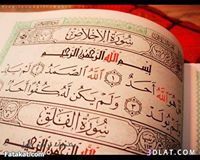 سُورَةُ الإِخْلَاصِ
بِسْمِ اللَّهِ الرَّحْمَٰنِ الرَّحِيمِ
هُوَ اللَّهُ أَحَدٌ ۝١ اللَّهُ الصَّمَدُ ۝٢ لَمْ يَلِدْ
يُولَدْ ۝٣ وَلَمْ يَكُن لَّهُ كُفُوًا أَحَدٌ
سُورَةُ الْفَلَقِ
Fatakat.com
3DLAT.COM